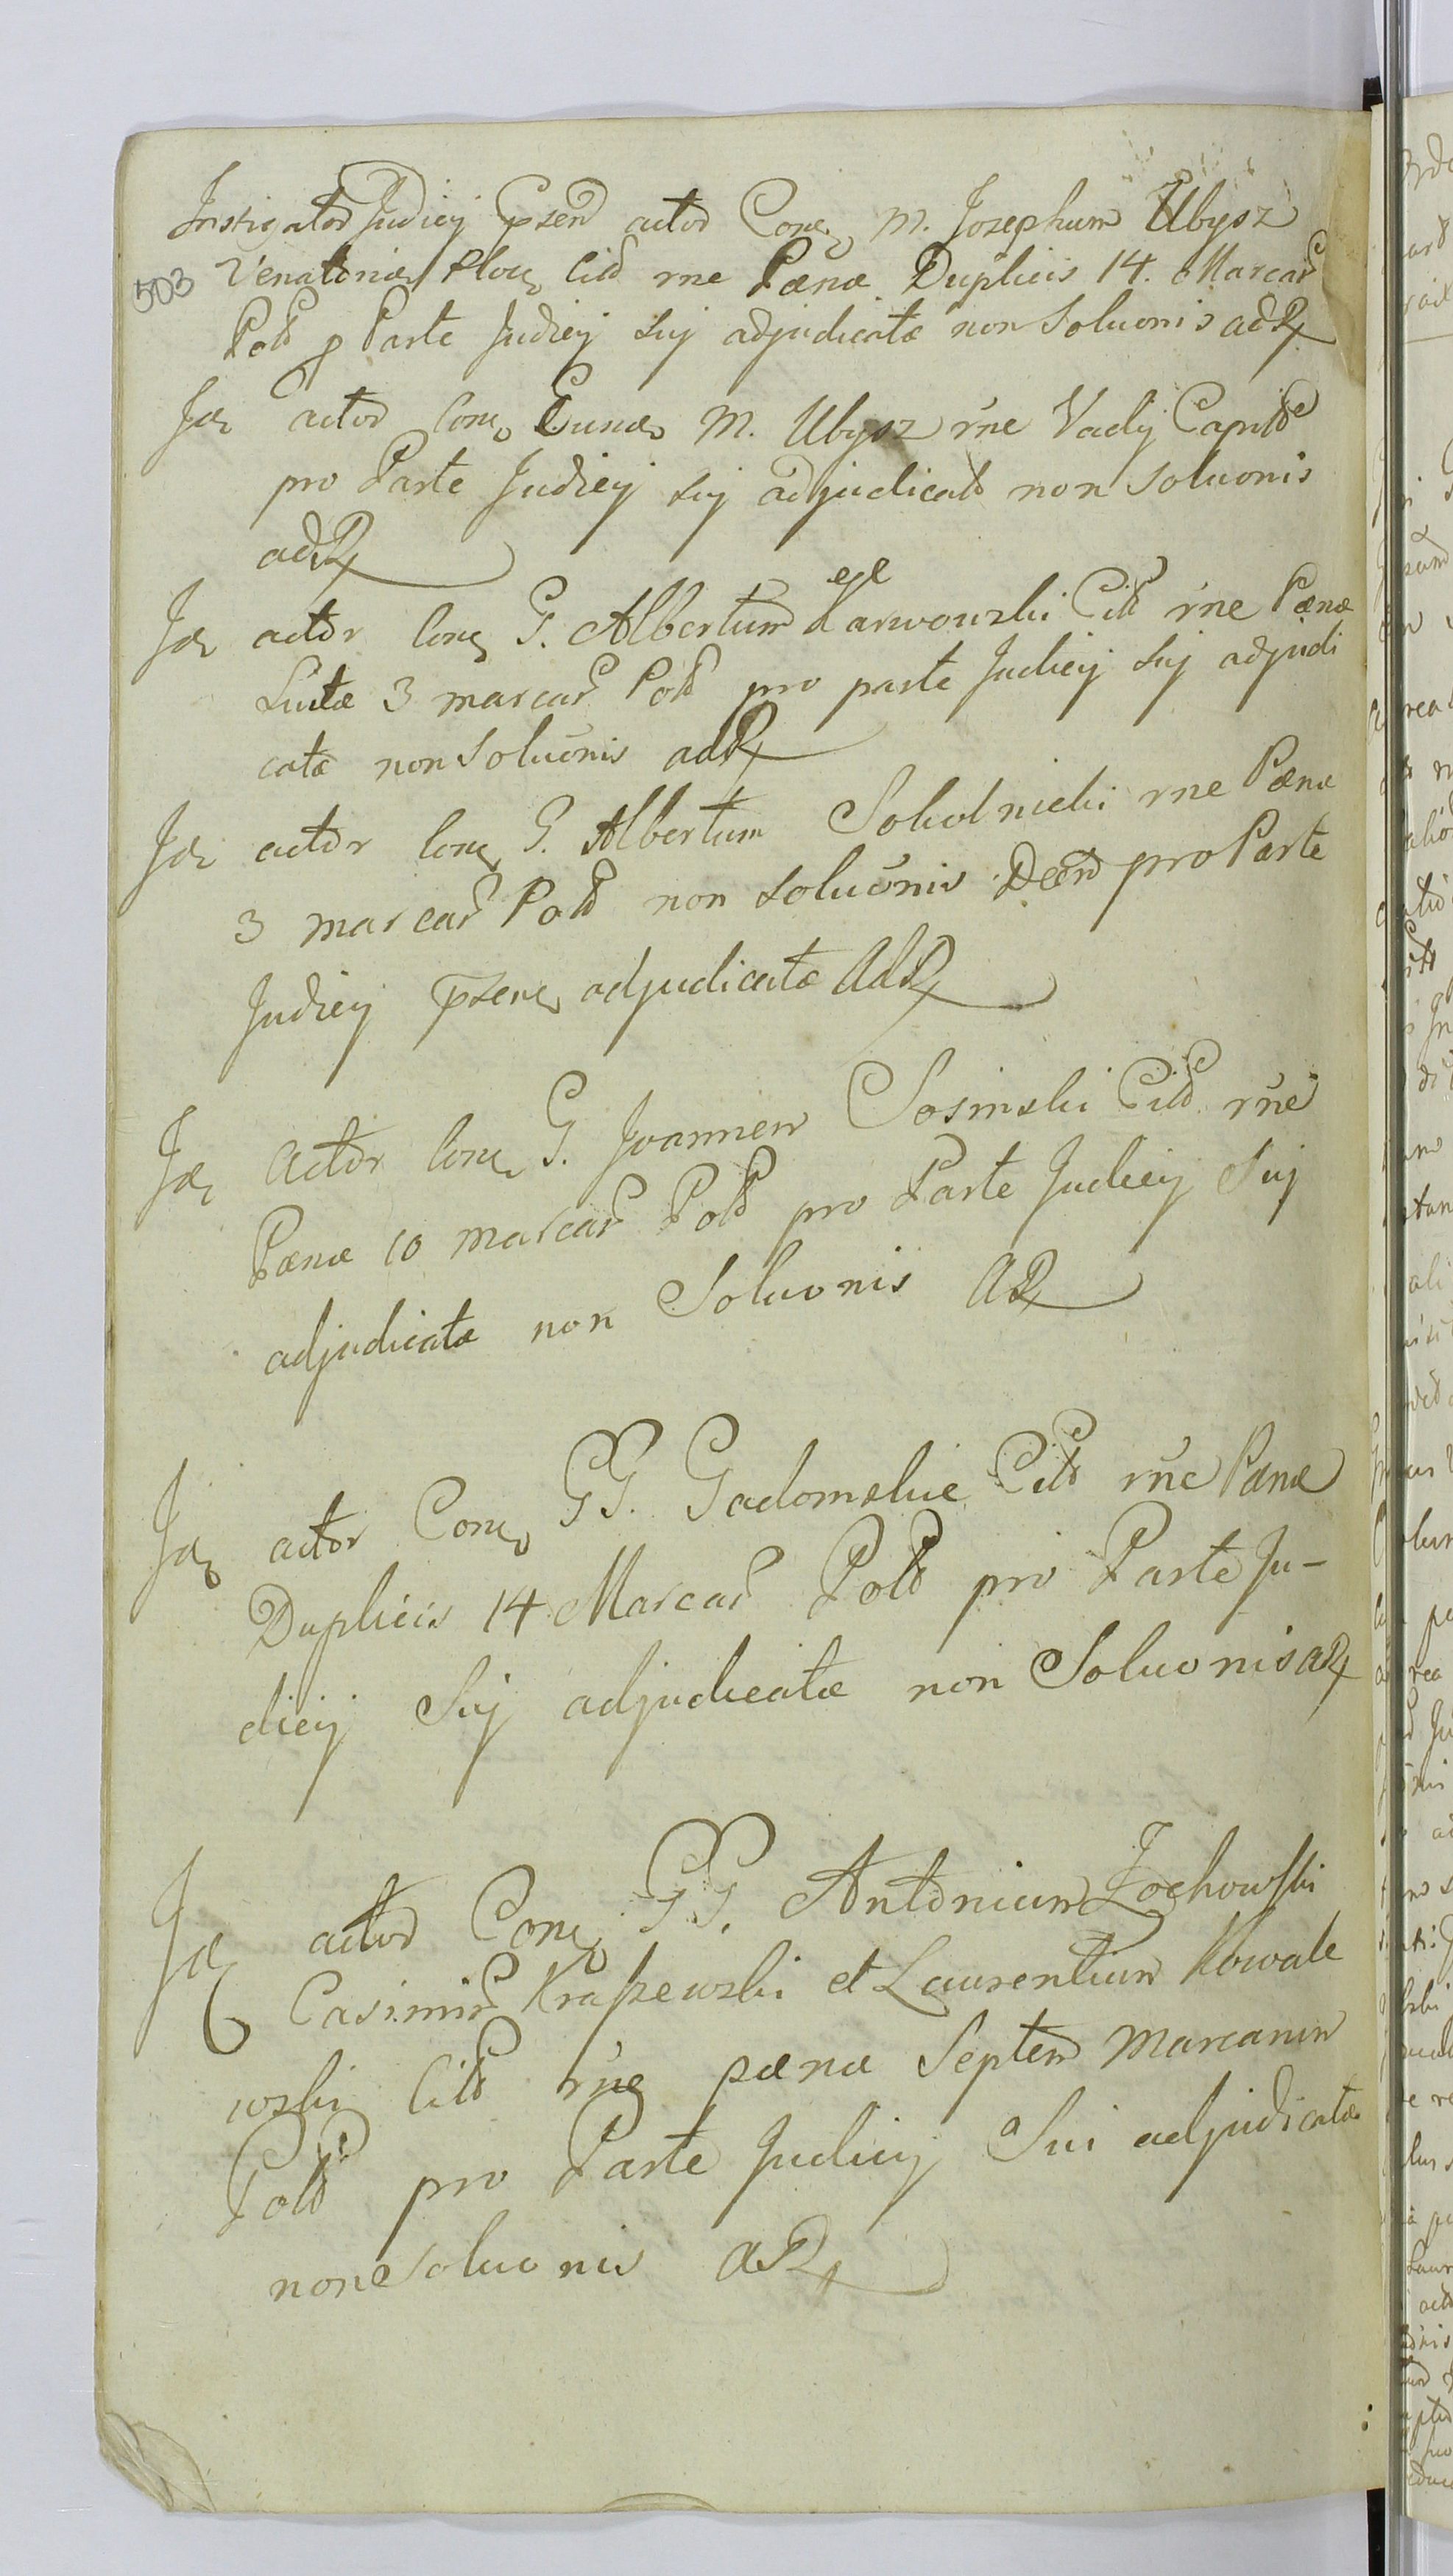 Instigator Judicij Pzsen actor Con. M. Josephum Ubysz
503 Venatoriæ Ploc. Citt rne Pænæ Duplicis 14. Marcar
Poll p Parte Judicij Suj adjudicatæ non Soluonis adR
Id. actor Con. Eund. M. Ubysz rne Vadij Capitt
pro Parte Judicij suj adjudicatt non soluonis
adR
ege
Id. actor Con. G. Albertum Karwowski Citt rne Pænæ
Luitæ 3 marcar Poll pro parte Judicij Suj adjudi
catæ non Soluonis adR
Id. actor Con. G. Albertum Sokolnicki rne Pænæ
3 marcar Poll non soluonis Decr pro Parte
Judicij Pzsen. adjudicatæ AdR
Id. Actor Con. G. Joannem Sosinski Citt rne
Pænæ 10 marcar Poll pro Parte Judicij Suj
adjudicatæ non Soluonis AR
Id. actor Con. GG. Gadomskie Citt rne Pænæ
Duplicis 14 Marcar Poll pro Parte Ju-
dicij Suj adjudicatæ non Soluonis aR
Id. actor Con. GG. Antonium Zochowski
Casimir Kraszewski et Laurentium Kowale
wski Citt rne pænæ Septem Marcarum
Poll pro Parte Judicij Sui adjudicatæ
non Soluonis adR